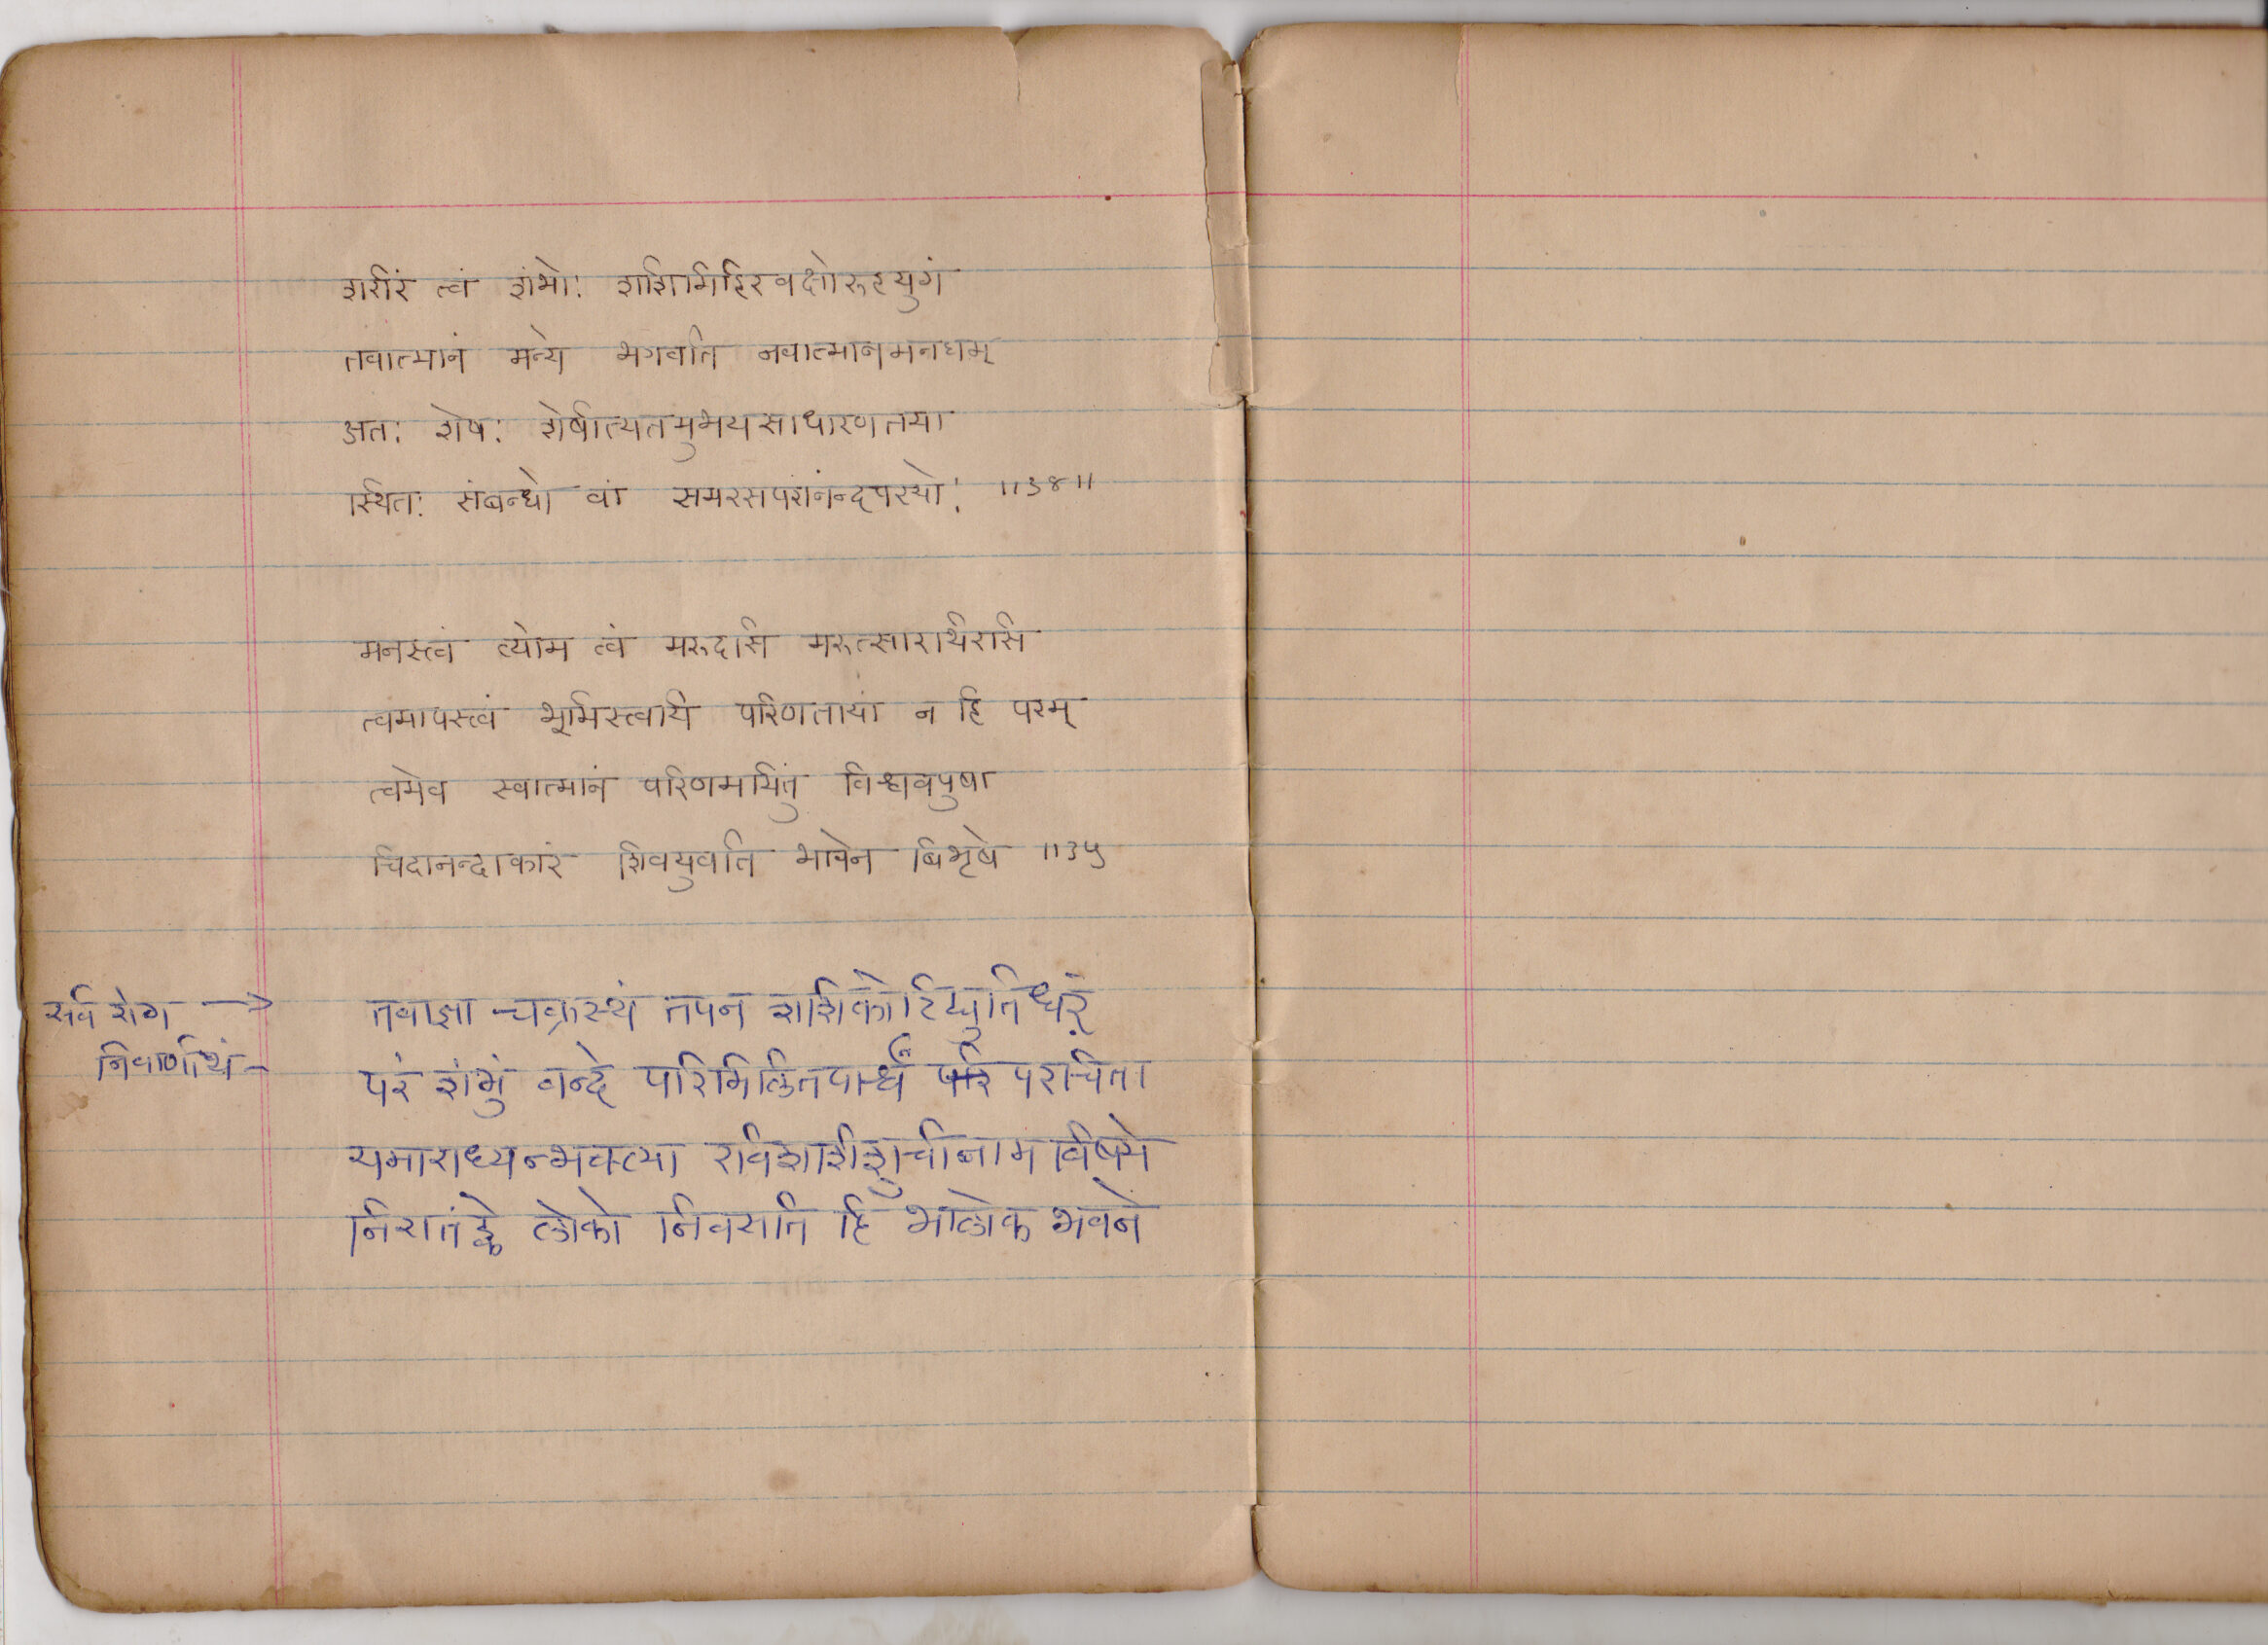 शरीरं त्वं शंभोः शशिमिहिरवक्षोरुहयुगं
तवात्मानं मन्ये भगवति नवात्मानमनघम्
अतः शेषः शेषीत्ययमुभयसाधारणतया
स्थितः संबन्धो वां समरसपरानन्दपरयोः ॥३४॥
मनस्त्वं व्योम त्वं मरुदसि मरुत्सारथिरसि
त्वमापस्त्वं भूमिस्त्वयि परिणतायां न हि परम्
त्वमेव स्वात्मानं परिणमयितुं विश्ववपुषा
चिदानन्दाकारं शिवयुवति भावेन बिभृषे ॥३५
सर्व रोग → तवाज्ञा चक्रस्थं तपन शशिकोटिद्युतिधरं
निवार्णार्थ- परं शंभुं वन्दे परिमिलितपार्श्वं परचिता
यमाराध्यन्भक्त्या रविशशिशुचीनाम विषये
निरातंङ्के लोको निवसति हि भालोक भवने